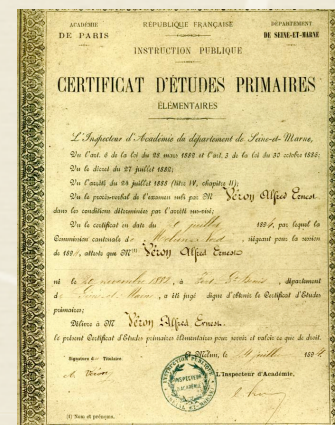 ACADÉMIE
DE PARIS
RÉPUBLIQUE FRANÇAISE
DÉPARTEMENT
DE SEINE-ET-MARNE
INSTRUCTION PUBLIQUE
CERTIFICAT D'ÉTUDES PRIMAIRES
ÉLÉMENTAIRES
L'Inspecteur d'Académie du département de Seine-et-Marne,
Vu l'art. 6 de la loi du 28 mars 1882 et l'art. 3 de la loi du 30 octobre 1886;
Vu le décret du 27 juillet 1882;
Vu l'arrêté du 24 juillet 1888 (titre IV, chapitre II);
Vu le procès-verbal de l'examen subi par M Véron Alfred Ernest
dans les conditions déterminées par l'arrêté sus-visé;
Vu le certificat en date du juillet 189 , par lequel la
Commission cantonale de Nord, siégeant pour la session
de 189 , atteste que M Véron Alfred Ernest
né le 20 novembre 188 , à , département
de Seine-et-Marne, a été jugé digne d'obtenir le Certificat d'Études
primaires;
Délivre à M Véron Alfred Ernest
le présent Certificat d'Études primaires élémentaires pour servir et valoir ce que de droit.
Melun, le juillet 189
Signature du Titulaire
A. Véron
L'Inspecteur d'Académie,
INSTRUCTION PUBLIQUE
INSPECTEUR
D'ACADÉMIE
(1) Nom et prénoms.